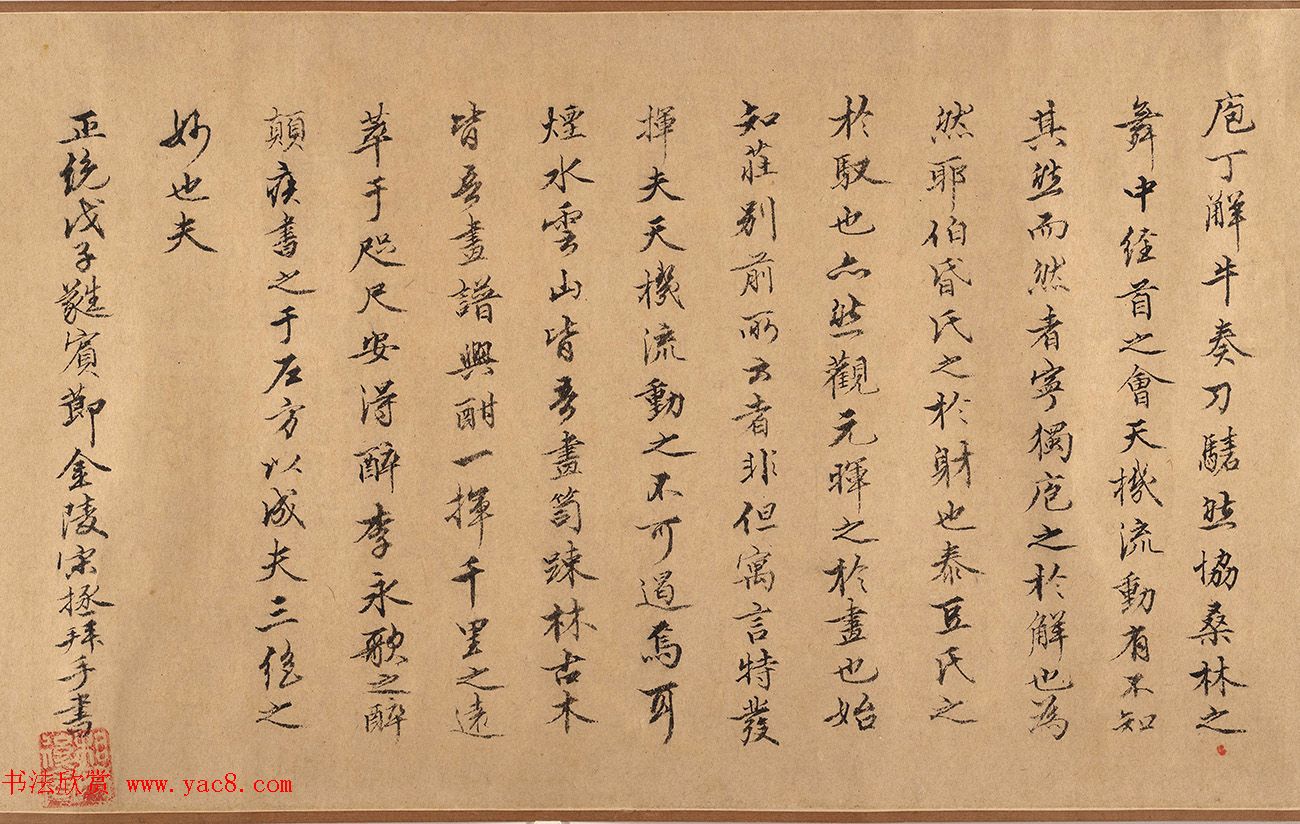 庖丁解牛奏刀騞然協桑林之
舞中經首之會天機流動有不知
其然而然者寧獨庖之於解也為
然耶伯昏氏之於射也泰豆氏之
於馭也亦然觀元暉之於畫也始
知莊列前所云者非但寓言特發
揮夫天機流動之不可遏焉耳
煙水雲山皆吾畫笥踈林古木
皆吾畫譜興酣一揮千里之遠
萃于咫尺安得醉李永歌之醉
顛疾書之于左方以成夫三絕之
妙也夫
正統戊子蕤賓節金陵宋拯拜手書
书法欣赏 www.yac8.com